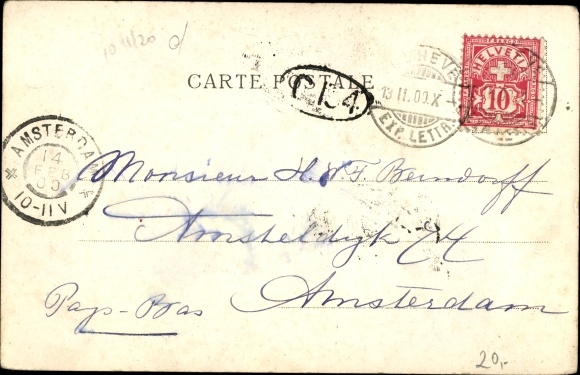 10/11/20 d
HELVETIA
FRANCO
10
CARTE POSTALE
C 154.
13.II.00.X
EXP. LETTR.
AMSTERDAM
14
FEB
00
10-11V
Monsieur H. F. Berndorff
Amsteldyk 74
Pays-Bas Amsterdam
20,-